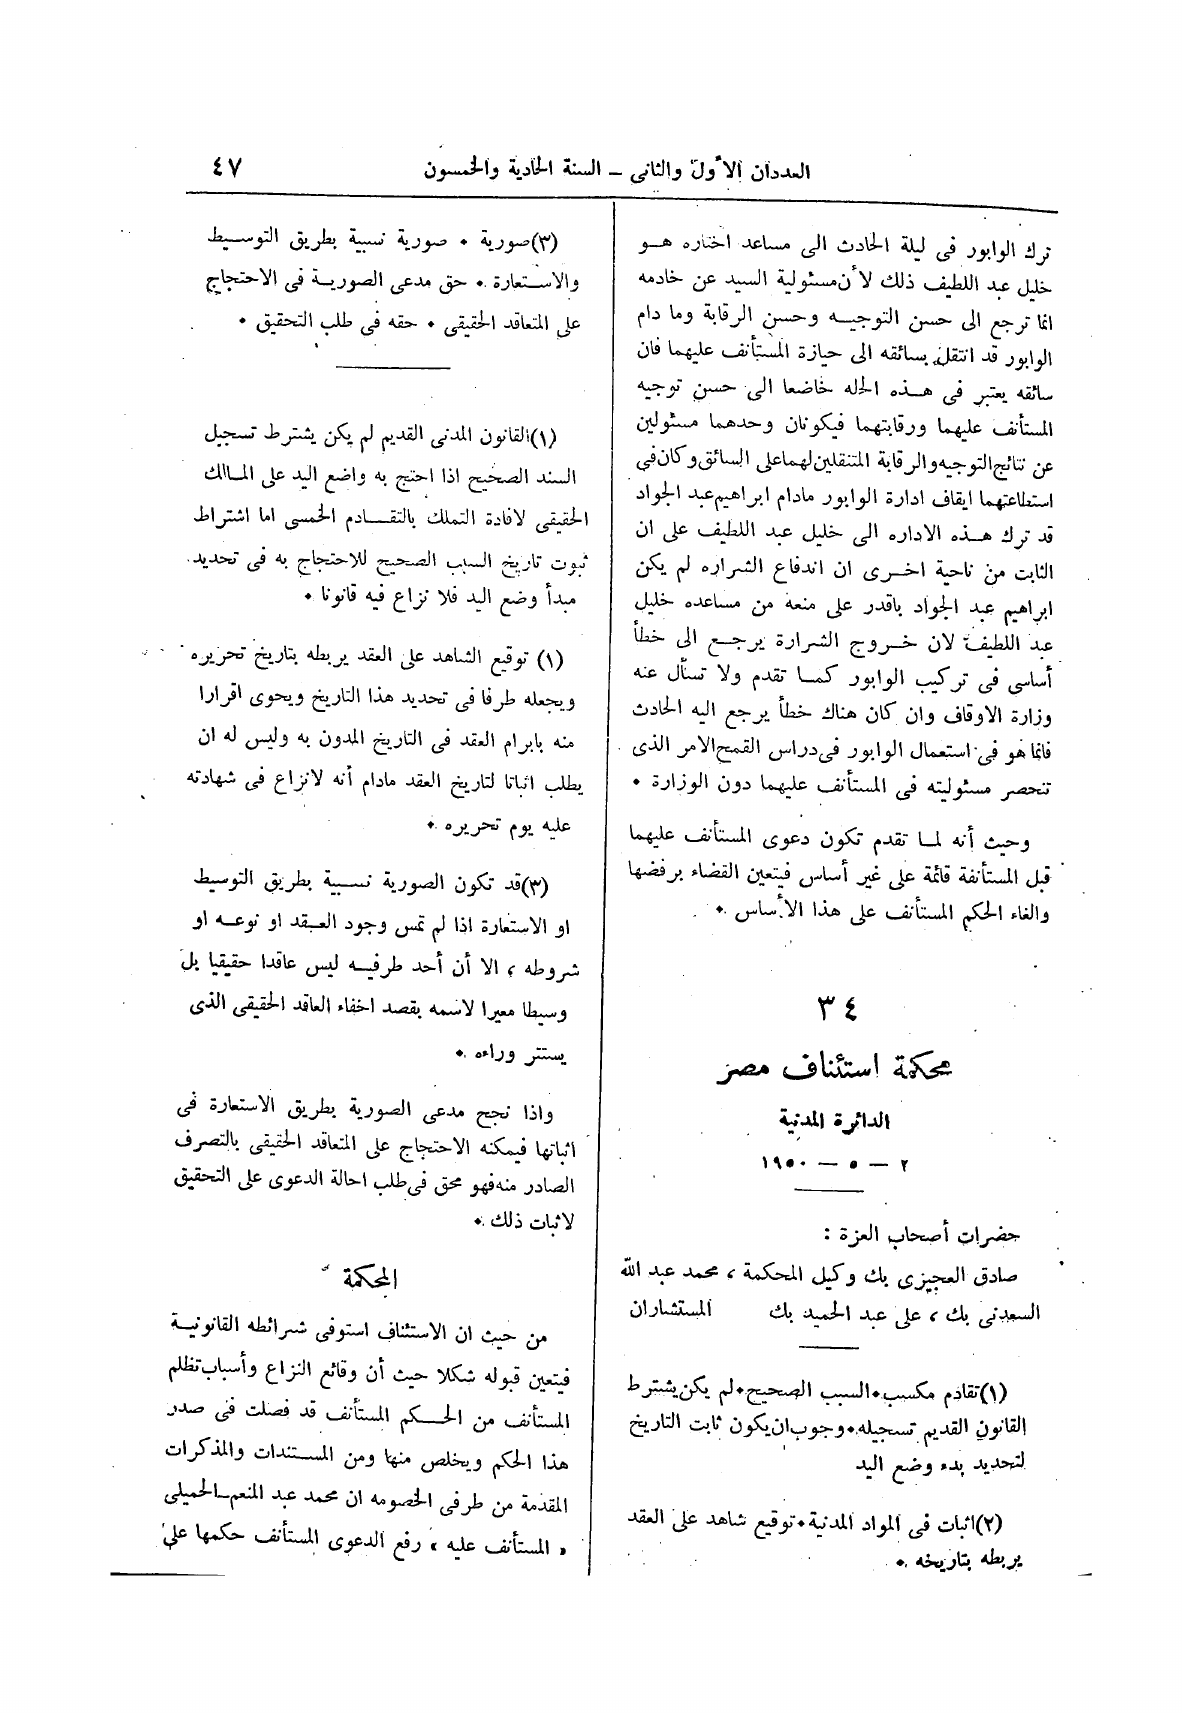 العددان الأول والثانى – السنة الحادية والخمسون
٤٧
ترك الوابور فى ليلة الحادث الى مساعد اختاره هو
خليل عبد اللطيف ذلك لأن مسئولية السيد عن خادمه
انما ترجع الى حسن التوجيه وحسن الرقابة وما دام
الوابور قد انتقل بسائقه الى حيازة المستأنف عليهما فان
سائقه يعتبر فى هذه الحاله خاضعا الى حسن توجيه
المستأنف عليهما ورقابتهما فيكونان وحدهما مسئولين
عن نتائج التوجيه والرقابة المتنقلين لهما على السائق وكان فى
استطاعتهما ايقاف ادارة الوابور مادام ابراهيم عبد الجواد
قد ترك هذه الاداره الى خليل عبد اللطيف على ان
الثابت من ناحية اخرى ان اندفاع الشراره لم يكن
ابراهيم عبد الجواد باقدر على منعه من مساعده خليل
عبد اللطيف لان خروج الشرارة يرجع الى خطأ
أساسى فى تركيب الوابور كما تقدم ولا تسأل عنه
وزارة الاوقاف وان كان هناك خطأ يرجع اليه الحادث
فانما هو فى استعمال الوابور فى دراس القمح الامر الذى
تنحصر مسئوليته فى المستأنف عليهما دون الوزارة •
وحيث أنه لما تقدم تكون دعوى المستأنف عليهما
قبل المستأنفة قائمة على غير أساس فيتعين القضاء برفضها
والغاء الحكم المستأنف على هذا الأساس •
٣٤
محكمة استئناف مصر
الدائرة المدنية
٢ – ٥ – ١٩٥٠
حضرات أصحاب العزة :
صادق العجيزى بك وكيل المحكمة ، محمد عبد الله
السعدنى بك ، على عبد الحميد بك المستشاران
(١)تقادم مكسب•السبب الصحيح•لم يكن يشترط
القانون القديم تسجيله•وجوب ان يكون ثابت التاريخ
لتحديد بدء وضع اليد
(٢)اثبات فى المواد المدنية•توقيع شاهد على العقد
يربطه بتاريخه •
(٣)صورية • صورية نسبية بطريق التوسيط
والاستعارة • حق مدعى الصورية فى الاحتجاج
على المتعاقد الحقيقى • حقه فى طلب التحقيق •
(١)القانون المدنى القديم لم يكن يشترط تسجيل
السند الصحيح اذا احتج به واضع اليد على المالك
الحقيقى لافادة التملك بالتقادم الخمسى اما اشتراط
ثبوت تاريخ السبب الصحيح للاحتجاج به فى تحديد
مبدأ وضع اليد فلا نزاع فيه قانونا •
(١) توقيع الشاهد على العقد يربطه بتاريخ تحريره
ويجعله طرفا فى تحديد هذا التاريخ ويحوى اقرارا
منه بابرام العقد فى التاريخ المدون به وليس له ان
يطلب اثباتا لتاريخ العقد مادام أنه لانزاع فى شهادته
عليه يوم تحريره •
(٣)قد تكون الصورية نسبية بطريق التوسيط
او الاستعارة اذا لم تمس وجود العقد او نوعه او
شروطه ، الا أن أحد طرفيه ليس عاقدا حقيقيا بل
وسيطا معيرا لاسمه بقصد اخفاء العاقد الحقيقى الذى
يستتر وراءه •
واذا نجح مدعى الصورية بطريق الاستعارة فى
اثباتها فيمكنه الاحتجاج على المتعاقد الحقيقى بالتصرف
الصادر منه فهو محق فى طلب احالة الدعوى على التحقيق
لاثبات ذلك •
المحكمة
من حيث ان الاستئناف استوفى شرائطه القانونية
فيتعين قبوله شكلا حيث أن وقائع النزاع وأسباب تظلم
المستأنف من الحكم المستأنف قد فصلت فى صدر
هذا الحكم ويخلص منها ومن المستندات والمذكرات
المقدمة من طرفى الخصومه ان محمد عبد المنعم الحميلى
« المستأنف عليه » رفع الدعوى المستأنف حكمها على